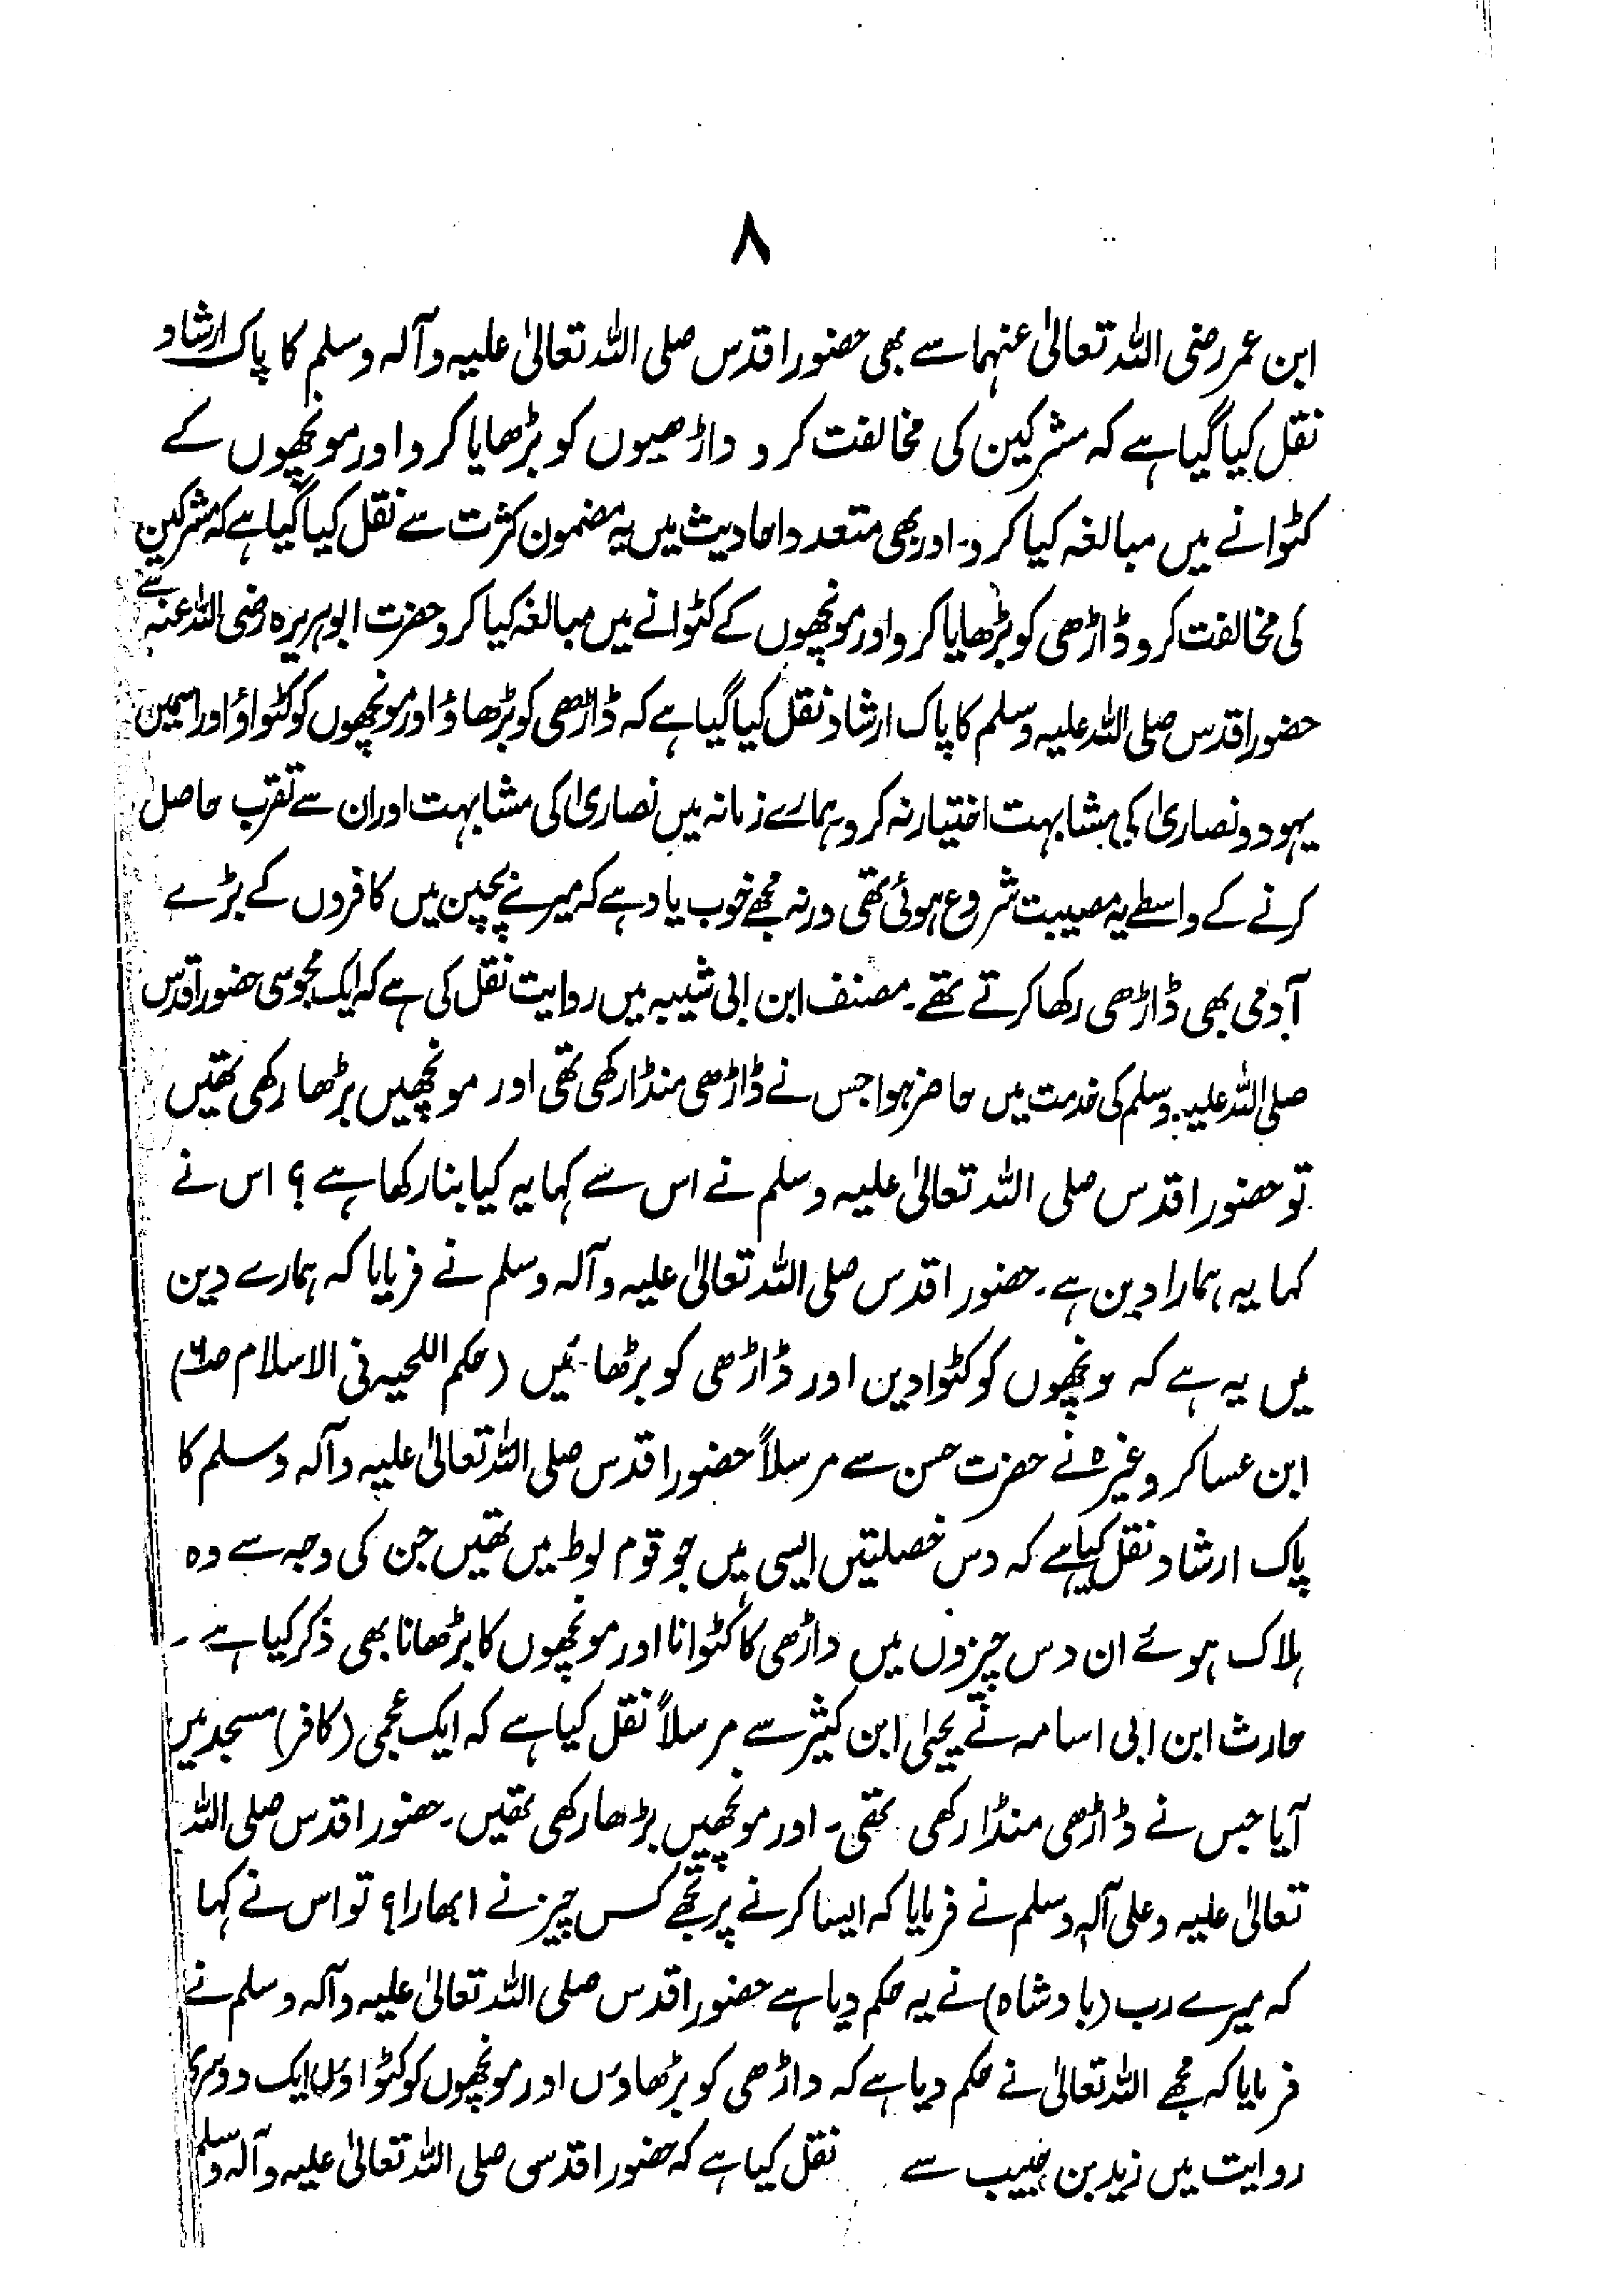 ۸
ابن عمر رضی اللہ تعالیٰ عنہما سے بھی حضور اقدس صلی اللہ تعالیٰ علیہ وآلہ وسلم کا پاک ارشاد
نقل کیا گیا ہے کہ مشرکین کی مخالفت کرو داڑھیوں کو بڑھایا کرو اور مونچھوں کے
کٹوانے میں مبالغہ کیا کرو۔ اور بھی متعدد احادیث میں یہ مضمون کثرت سے نقل کیا گیا ہے کہ مشرکین
کی مخالفت کرو ڈاڑھی کو بڑھایا کرو اور مونچھوں کے کٹوانے میں مبالغہ کیا کرو حضرت ابوہریرہ رضی اللہ عنہ سے
حضور اقدس صلی اللہ علیہ وسلم کا پاک ارشاد نقل کیا گیا ہے کہ ڈاڑھی کو بڑھاؤ اور مونچھوں کو کٹواؤ اور اسمیں
یہود و نصاریٰ کی مشابہت اختیار نہ کرو ہمارے زمانہ میں نصاریٰ کی مشابہت اور ان سے تقرب حاصل
کرنے کے واسطے یہ مصیبت شروع ہوئی تھی ورنہ مجھے خوب یاد ہے کہ میرے بچپن میں کافروں کے بڑے
آدمی بھی ڈاڑھی رکھا کرتے تھے۔ مصنف ابن ابی شیبہ میں روایت نقل کی ہے کہ ایک مجوسی حضور اقدس
صلی اللہ علیہ وسلم کی خدمت میں حاضر ہوا جس نے ڈاڑھی منڈا رکھی تھی اور مونچھیں بڑھا رکھی تھیں
تو حضور اقدس صلی اللہ تعالیٰ علیہ وسلم نے اس سے کہا یہ کیا بنا رکھا ہے ؟ اس نے
کہا یہ ہمارا دین ہے۔ حضور اقدس صلی اللہ تعالیٰ علیہ وآلہ وسلم نے فرمایا کہ ہمارے دین
میں یہ ہے کہ مونچھوں کو کٹوادیں اور ڈاڑھی کو بڑھائیں (حکم اللحیہ فی الاسلام صـ)
ابن عساکر وغیرہ نے حضرت حسن سے مرسلاً حضور اقدس صلی اللہ تعالیٰ علیہ وآلہ وسلم کا
پاک ارشاد نقل کیا ہے کہ دس خصلتیں ایسی ہیں جو قوم لوط میں تھیں جن کی وجہ سے وہ
ہلاک ہوئے ان دس چیزوں میں داڑھی کا کٹوانا اور مونچھوں کا بڑھانا بھی ذکر کیا ہے۔
حارث ابن ابی اسامہ نے یحیٰی ابن کثیر سے مرسلاً نقل کیا ہے کہ ایک عجمی (کافر) مسجد میں
آیا جس نے ڈاڑھی منڈا رکھی تھی۔ اور مونچھیں بڑھا رکھی تھیں۔ حضور اقدس صلی اللہ
تعالیٰ علیہ وعلی آلہ وسلم نے فرمایا کہ ایسا کرنے پر تجھے کس چیز نے ابھارا؟ تو اس نے کہا
کہ میرے رب (بادشاہ) نے یہ حکم دیا ہے حضور اقدس صلی اللہ تعالیٰ علیہ وآلہ وسلم نے
فرمایا کہ مجھے اللہ تعالیٰ نے حکم دیا ہے کہ داڑھی کو بڑھاؤں اور مونچھوں کو کٹواؤں ایک دوسری
روایت میں زید بن حبیب سے نقل کیا ہے کہ حضور اقدسی صلی اللہ تعالیٰ علیہ وآلہ وسلم